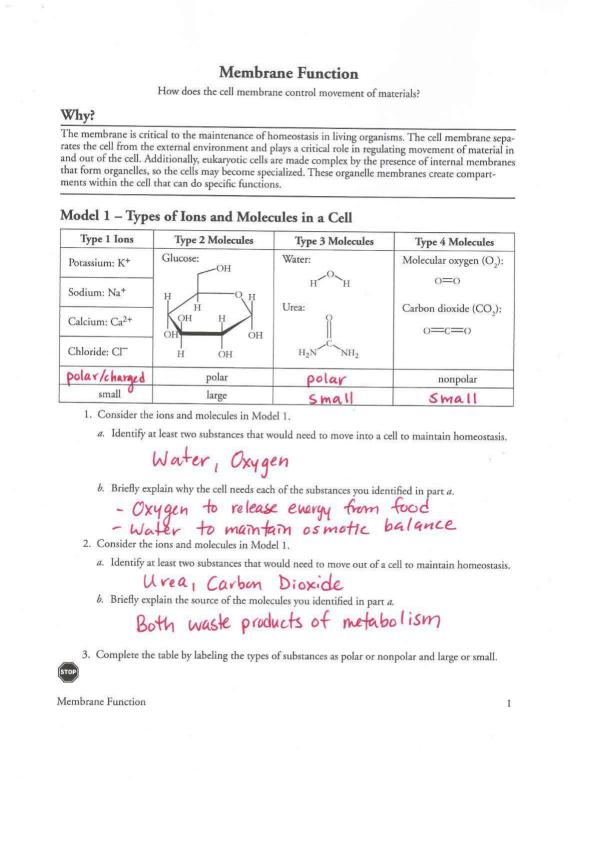 Membrane Function
How does the cell membrane control movement of materials?
Why?
The membrane is critical to the maintenance of homeostasis in living organisms. The cell membrane sepa-
rates the cell from the external environment and plays a critical role in regulating movement of material in
and out of the cell. Additionally, eukaryotic cells are made complex by the presence of internal membranes
that form organelles, so the cells may become specialized. These organelle membranes create compart-
ments within the cell that can do specific functions.
Model 1 – Types of Ions and Molecules in a Cell
Type 1 Ions Type 2 Molecules Type 3 Molecules Type 4 Molecules
Potassium: K⁺
Sodium: Na⁺
Calcium: Ca²⁺
Chloride: Cl⁻
Glucose:
OH
H O H
H
OH H
OH OH
H OH
Water:
O
H H
Urea:
O
C
H₂N NH₂
Molecular oxygen (O₂):
O=O
Carbon dioxide (CO₂):
O=C=O
polar/charged polar polar nonpolar
small large small small
1. Consider the ions and molecules in Model 1.
a. Identify at least two substances that would need to move into a cell to maintain homeostasis.
Water, Oxygen
b. Briefly explain why the cell needs each of the substances you identified in part a.
- Oxygen to release energy from food
- Water to maintain osmotic balance
2. Consider the ions and molecules in Model 1.
a. Identify at least two substances that would need to move out of a cell to maintain homeostasis.
Urea, Carbon Dioxide
b. Briefly explain the source of the molecules you identified in part a.
Both waste products of metabolism
3. Complete the table by labeling the types of substances as polar or nonpolar and large or small.
STOP
Membrane Function 1